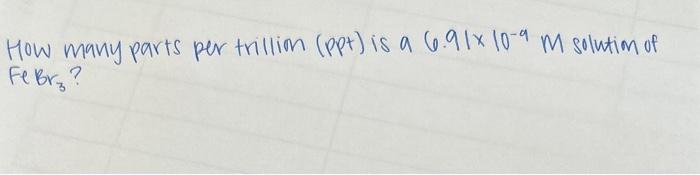 How many parts per trillion (ppt) is a 6.91x10⁻⁹ M solution of
FeBr₃?